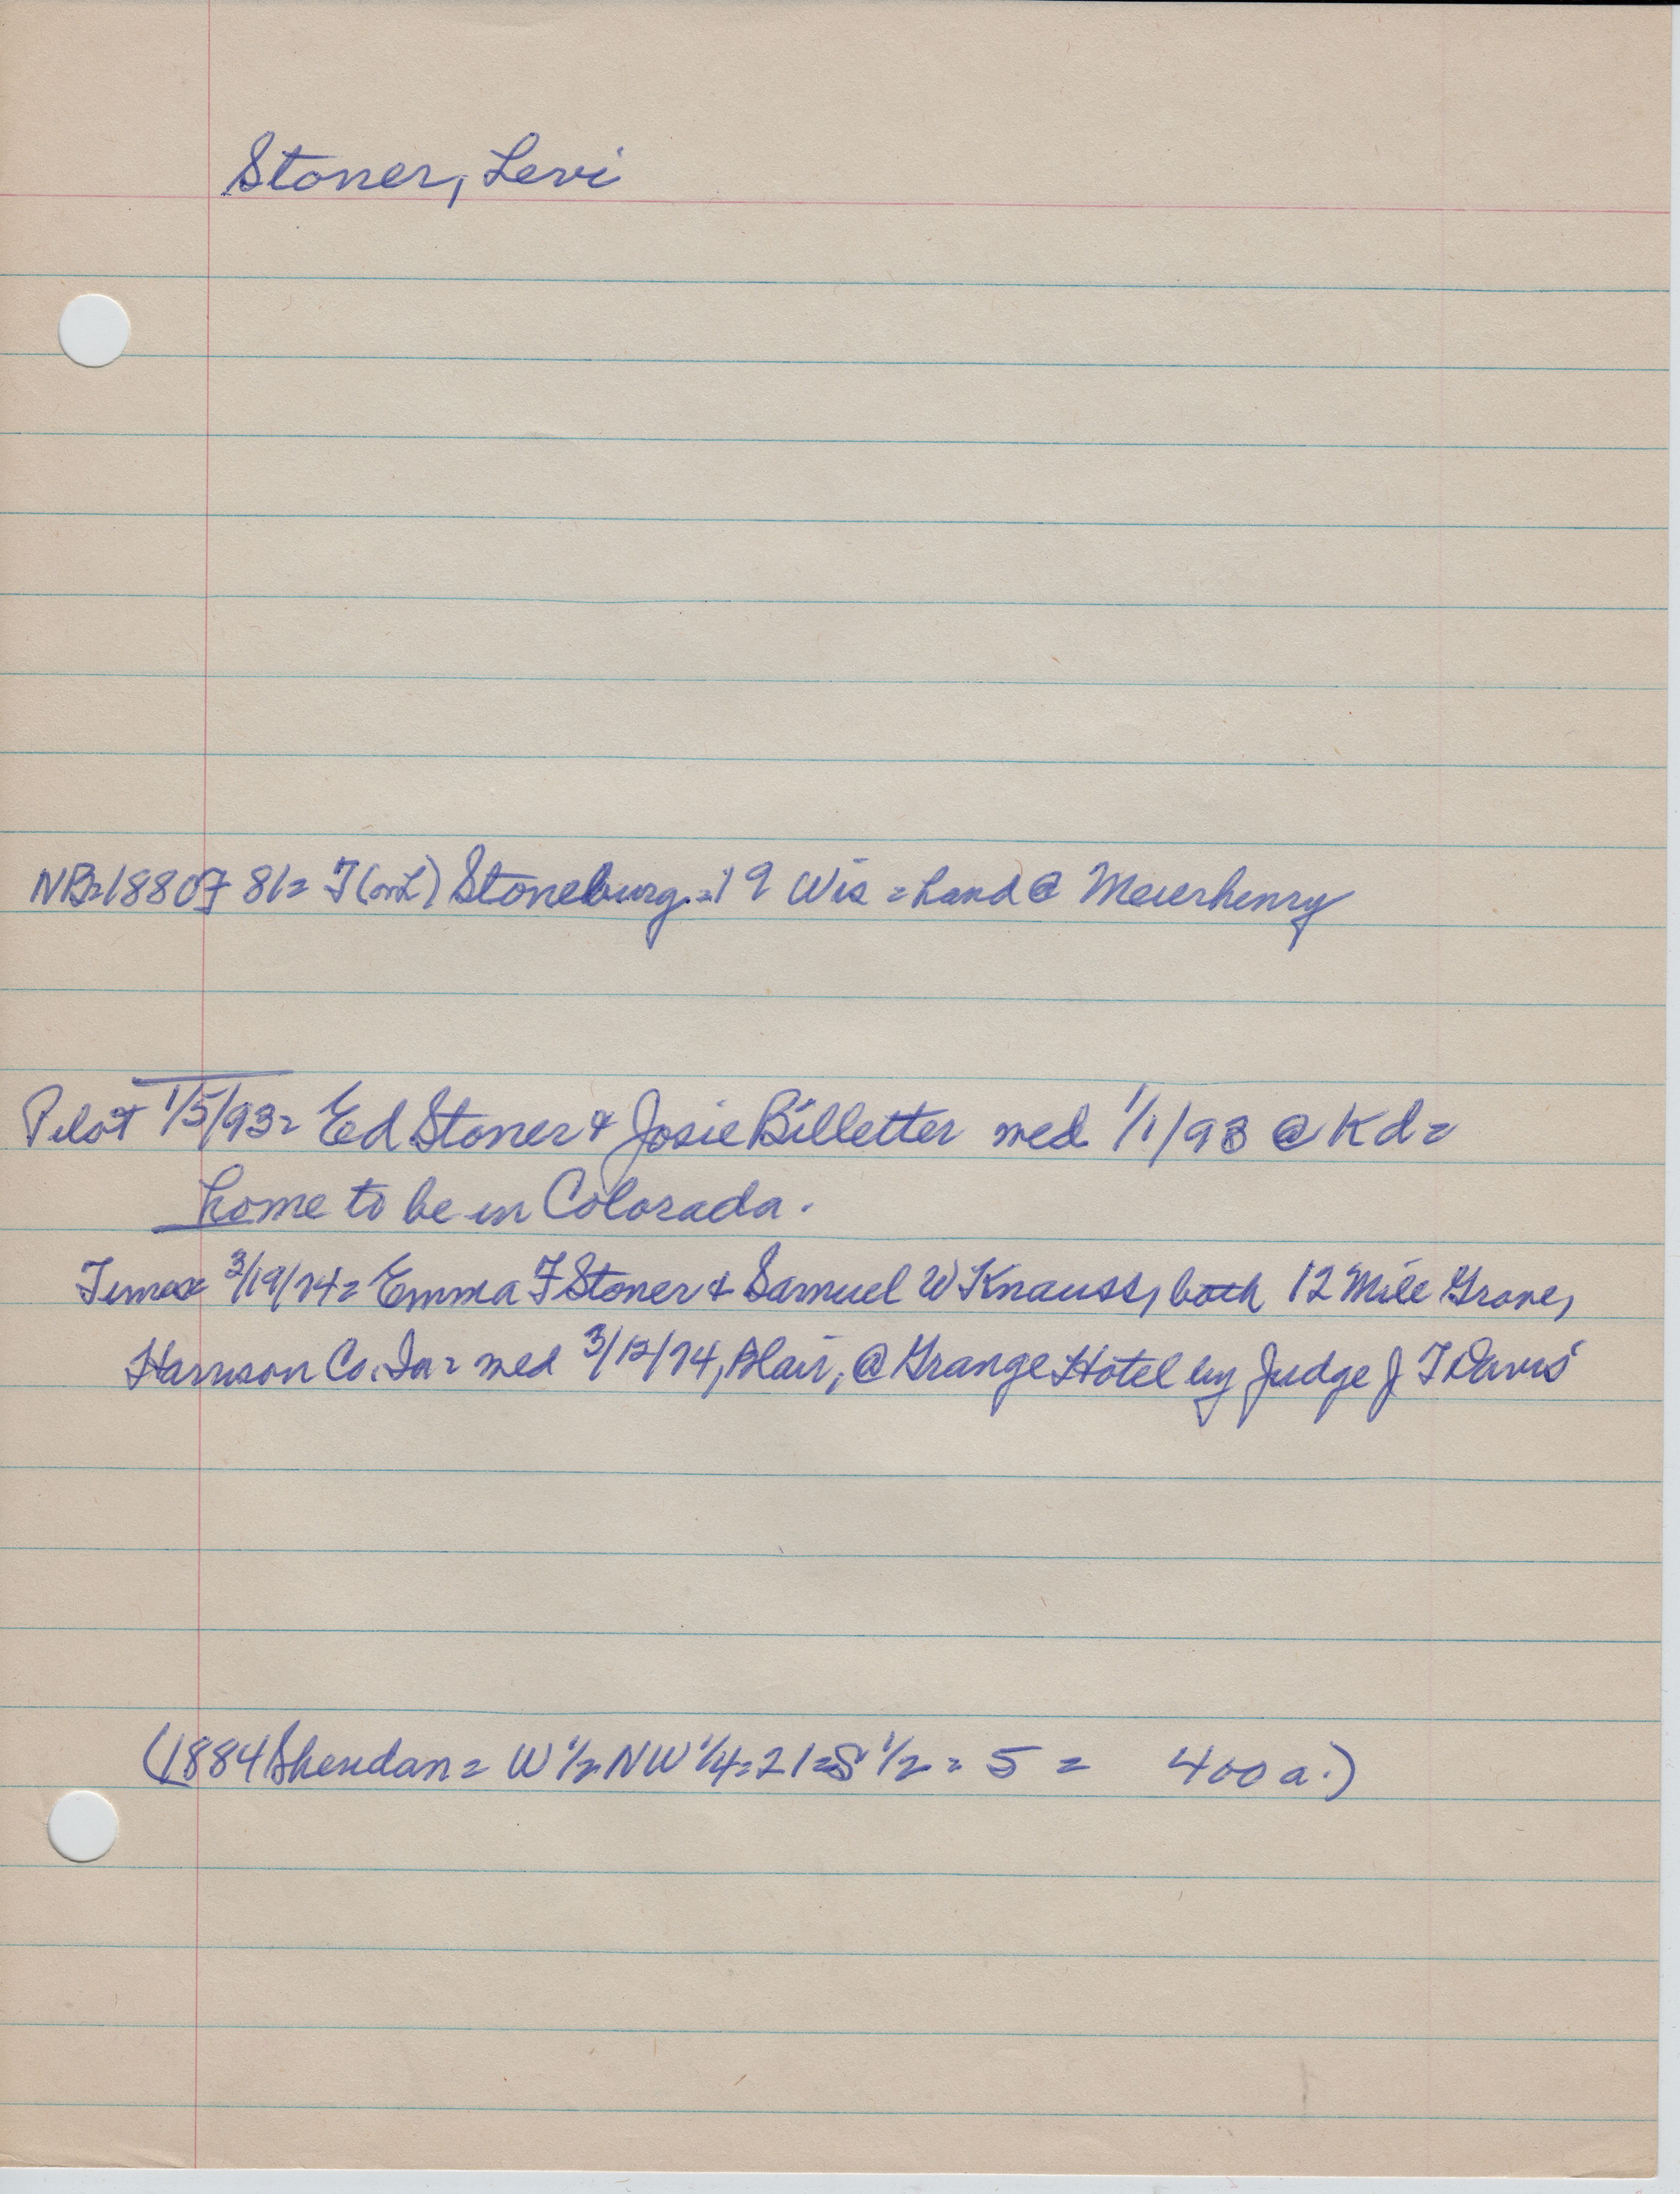 Stoner, Levi
NB=1880 F 81= T(or L) Stoneburg=19 Wis = hand @ Meierhenry
Pilot 1/5/93= Ed Stoner & Josie Billetter med 1/1/93 @ Kd=
home to be in Colorada.
Times 3/19/74= Emma F Stoner & Samuel W Knauss, both 12 Mile Grove,
Harrison Co. Ia= med 3/12/74, Blair, @ Grange Hotel by Judge J T Davis
(1884 Sheridan= W 1/2 NW 1/4=21=S 1/2=5= 400 a.)